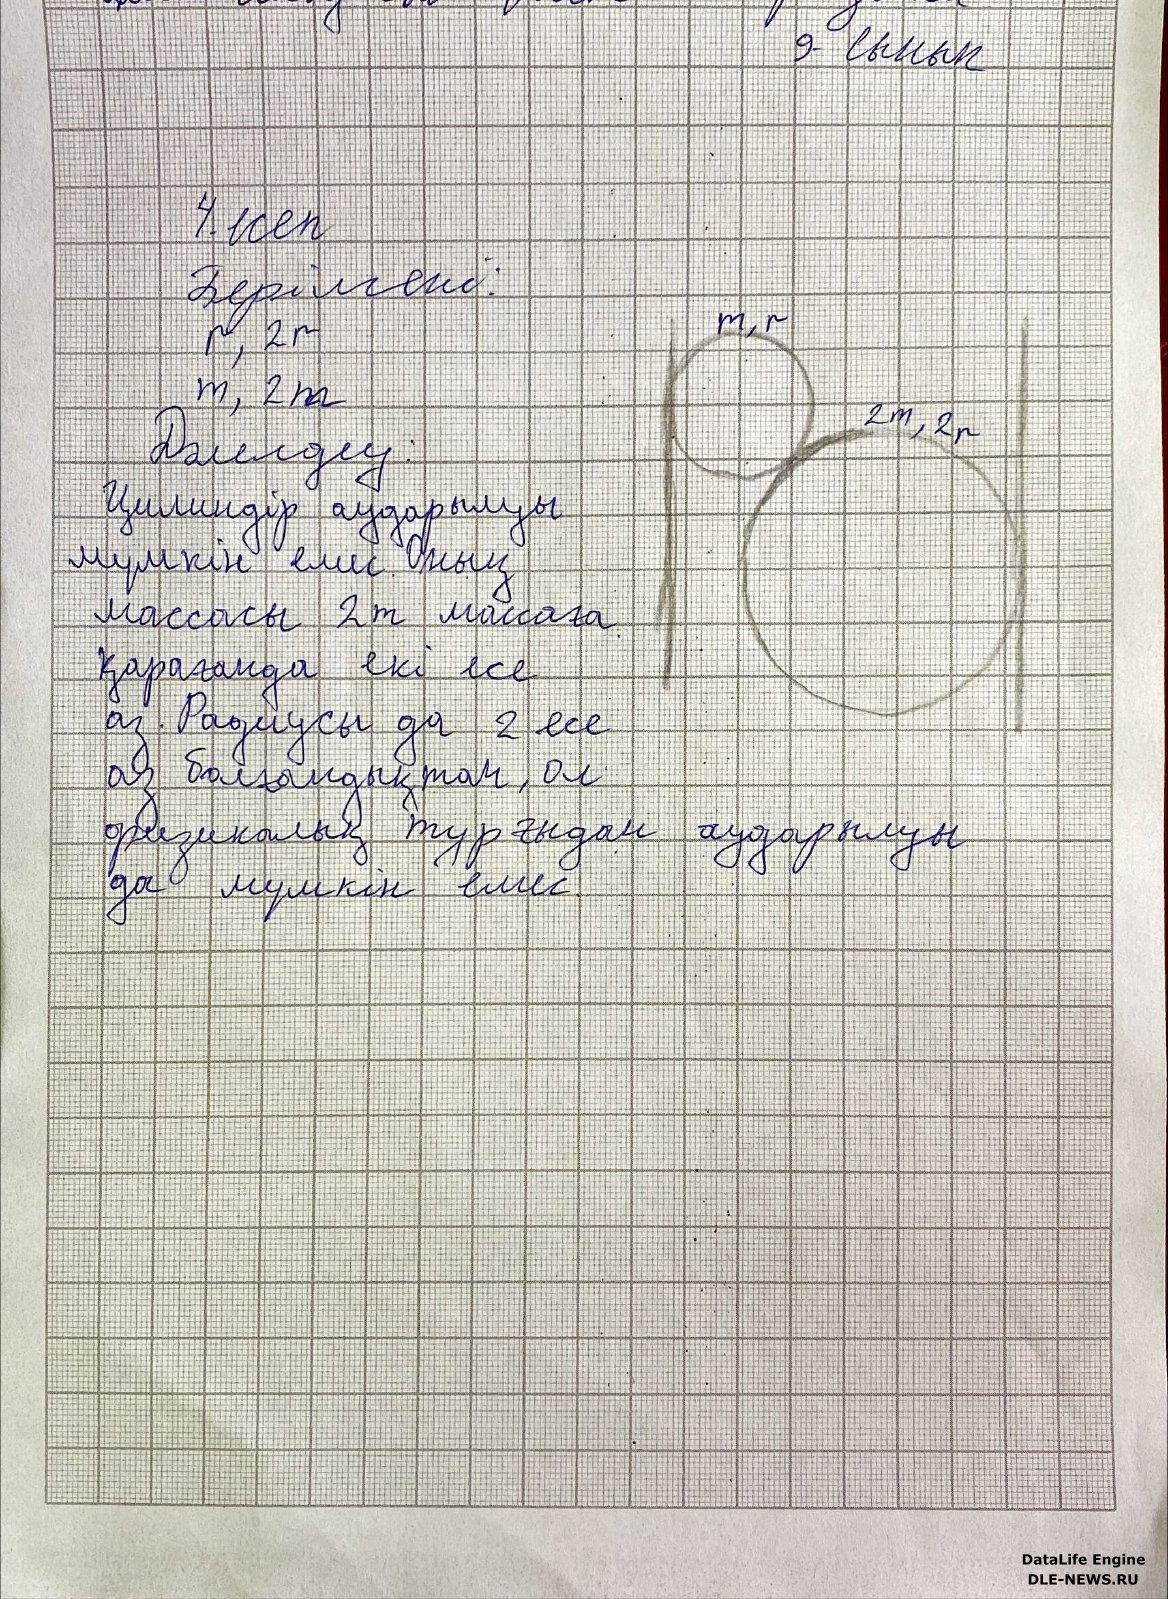 9- сынып
4. кеп
Берілгені:
r, 2r
m, 2m
m, r
2m, 2r
Дәлелдеу:
Цилиндір аударылуы
мүмкін емес. Оның
массасы 2m массаға
қарағанда екі есе
аз. Радиусы да 2 есе
аз болғандықтан, ол
физикалық тұрғыдан аударылуы
да мүмкін емес.
DataLife Engine
DLE-NEWS.RU